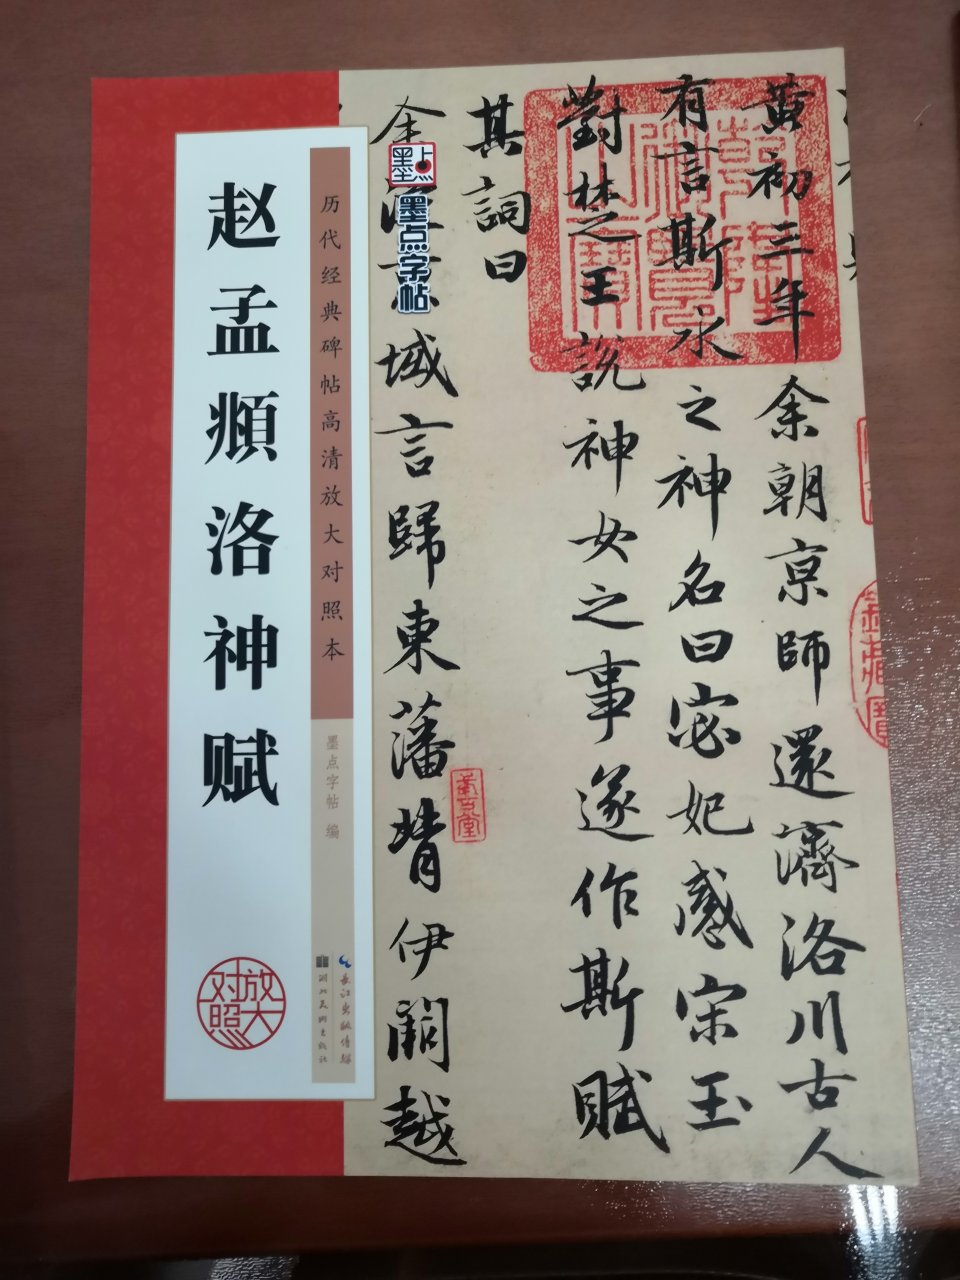 赵孟頫洛神赋
历代经典碑帖高清放大对照本
墨点字帖 编
放大对照
长江出版传媒
湖北美术出版社
墨点
墨点字帖
黄初三年余朝京師還濟洛川古人
有言斯水之神名曰宓妃感宋玉
對楚王說神女之事遂作斯賦
其詞曰
余
域言歸東藩背伊闕越